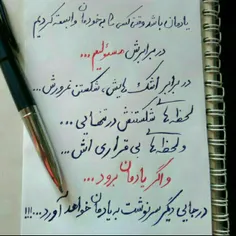 یادمان باشد وقتی کسی را به خودمان وابسته کردیم
در برابرش مسئولیم...
در برابر اشک هایش، شکستن غرورش...
لحظه های شکستنش در تنهایی...
و لحظه های بی قراری اش...
و اگر یادمان برود...
در جایی دیگر سرنوشت به یادمان خواهد آورد...!!!